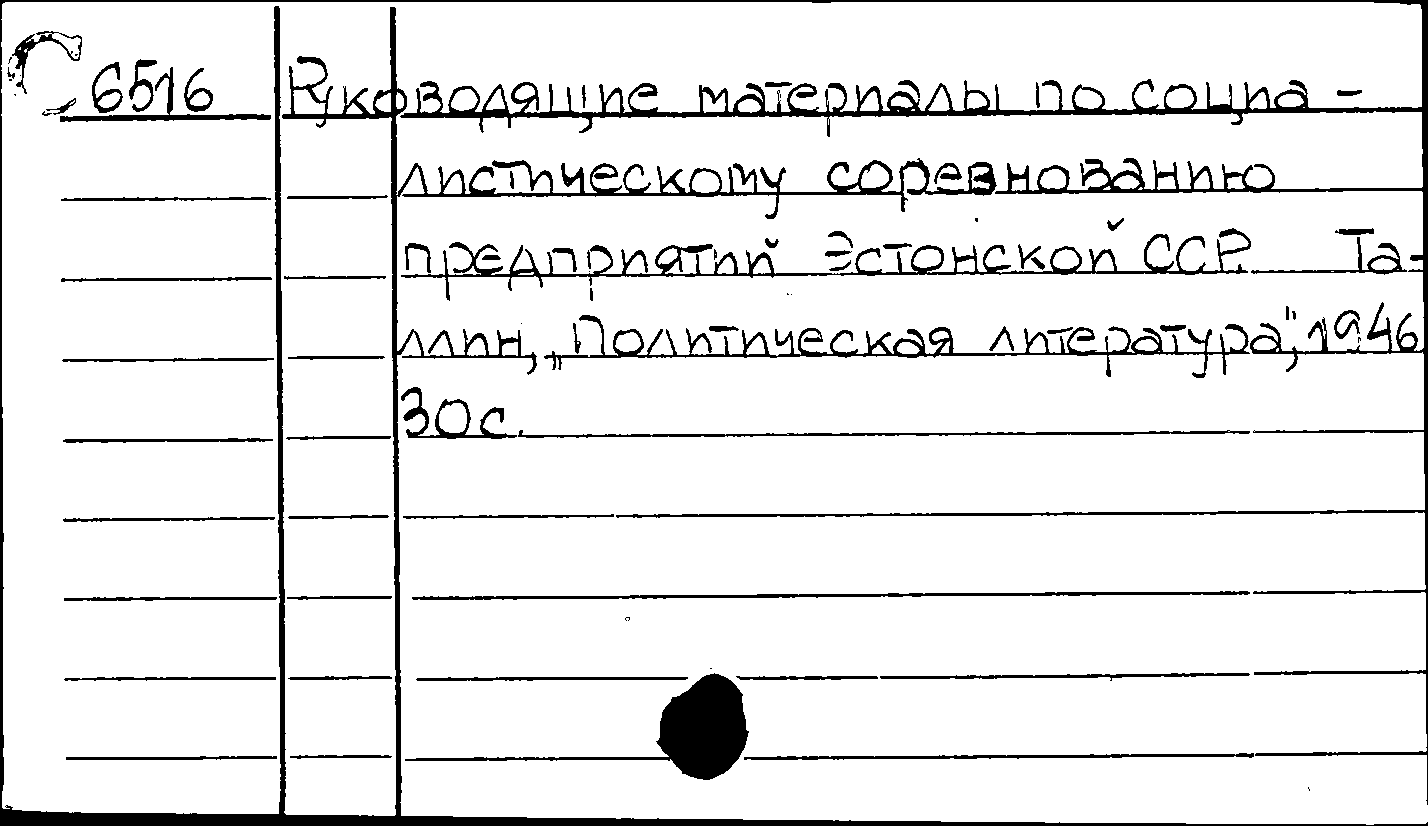 С 6516 Руководящие материалы по социа-
листическому соревнованию
предприятий Эстонской ССР. Та-
ллин, „Политическая литература", 1946
30 с.